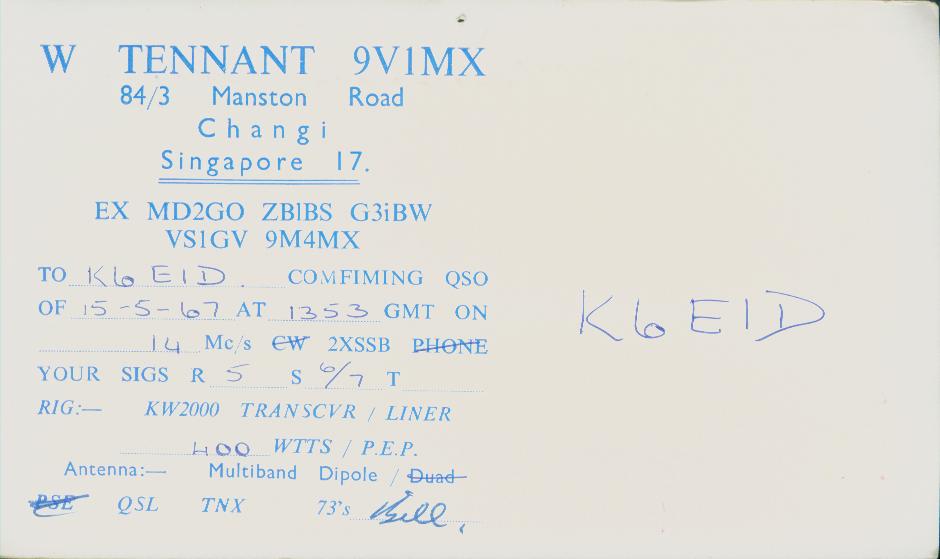 W TENNANT 9V1MX
84/3 Manston Road
Changi
Singapore 17.
EX MD2GO ZB1BS G3iBW
VS1GV 9M4MX
TO K6EID. COMFIMING QSO
OF 15-5-67 AT 1353 GMT ON
14 Mc/s CW 2XSSB PHONE
YOUR SIGS R 5 S 6/7 T
RIG:— KW2000 TRANSCVR / LINER
400 WTTS / P.E.P.
Antenna:— Multiband Dipole / Duad
PSE QSL TNX 73's Bill.
K6EID